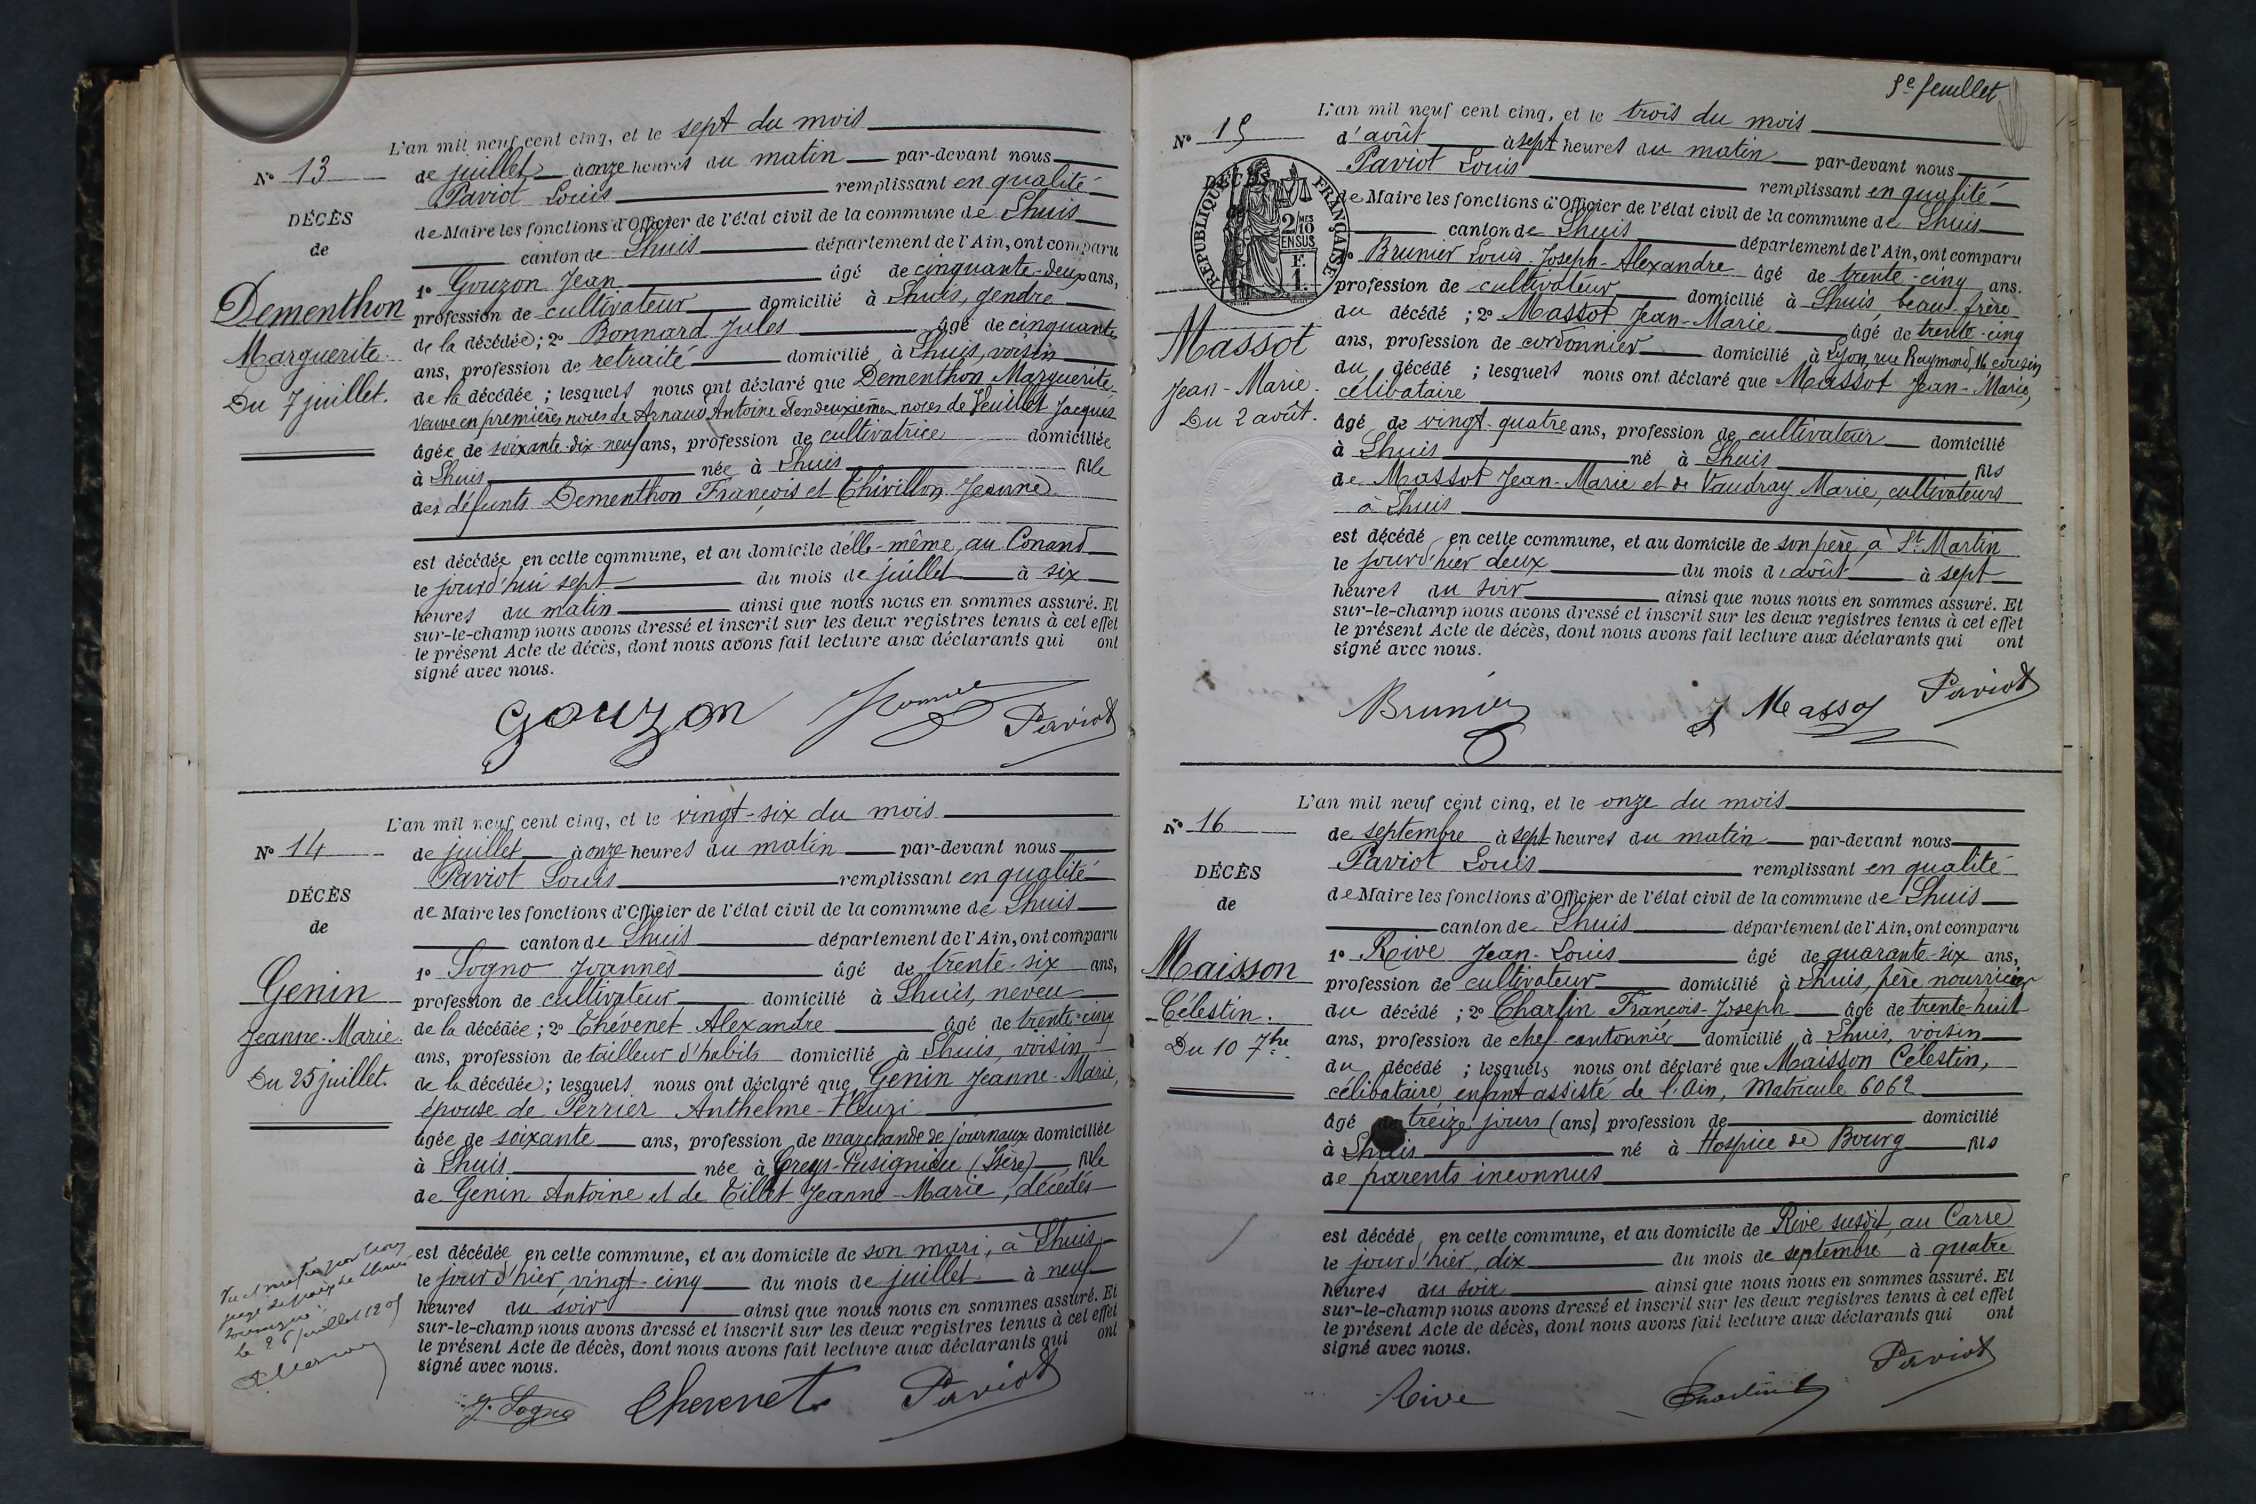 L'an mil neuf cent cinq, et le sept du mois
N° 13
de juillet à onze heures du matin par-devant nous
Paviot Louis remplissant en qualité
DÉCÈS
de Maire les fonctions d'Officier de l'état civil de la commune de Lhuis
de
canton de Lhuis département de l'Ain, ont comparu
1° Gouzon Jean âgé de cinquante-deux ans,
Dementhon
profession de cultivateur domicilié à Lhuis, gendre
de la décédée; 2° Bonnard Jules âgé de cinquante
Marguerite
ans, profession de retraité domicilié à Lhuis, voisin
Du 7 juillet.
de la décédée; lesquels nous ont déclaré que Dementhon Marguerite
veuve en premières noces de Arnaud Antoine & en deuxièmes noces de Veuillet Jacques
âgée de soixante-dix-neuf ans, profession de cultivatrice domiciliée
à Lhuis née à Lhuis fille
des défunts Dementhon François et Thivillon Jeanne
est décédée en cette commune, et au domicile d'elle-même, au Conand
le jourd'hui sept du mois de juillet à six
heures du matin ainsi que nous nous en sommes assuré. Et
sur-le-champ nous avons dressé et inscrit sur les deux registres tenus à cet effet
le présent Acte de décès, dont nous avons fait lecture aux déclarants qui ont
signé avec nous.
Gouzon Paviot
L'an mil neuf cent cinq, et le vingt-six du mois
N° 14
de juillet à onze heures du matin par-devant nous
Paviot Louis remplissant en qualité
DÉCÈS
de Maire les fonctions d'Officier de l'état civil de la commune de Lhuis
de
canton de Lhuis département de l'Ain, ont comparu
1° Sogno Joannès âgé de trente-six ans,
Genin
profession de cultivateur domicilié à Lhuis, neveu
Jeanne-Marie.
de la décédée; 2° Thévenet Alexandre âgé de trente-cinq
ans, profession de tailleur d'habits domicilié à Lhuis, voisin
Du 25 juillet.
de la décédée; lesquels nous ont déclaré que Genin Jeanne-Marie,
épouse de Perrier Anthelme-Fleuri
âgée de soixante ans, profession de marchande de journaux domiciliée
à Lhuis née à Creys-Pusignieu (Isère) fille
de Genin Antoine et de Tillet Jeanne-Marie, décédés
est décédée en cette commune, et au domicile de son mari, à Lhuis
le jour d'hier, vingt-cinq du mois de juillet à neuf
heures du soir ainsi que nous nous en sommes assuré. Et
sur-le-champ nous avons dressé et inscrit sur les deux registres tenus à cet effet
le présent Acte de décès, dont nous avons fait lecture aux déclarants qui ont
signé avec nous.
juge de paix de Lhuis
soussigné
le 26 juillet 1905
J. Sogno Thevenet Paviot
5e feuillet
L'an mil neuf cent cinq, et le trois du mois
N° 15
d'août à sept heures du matin par-devant nous
Paviot Louis remplissant en qualité
DÉCÈS
RÉPUBLIQUE FRANÇAISE
2/10 MES
EN SUS
F.
1.
de Maire les fonctions d'Officier de l'état civil de la commune de Lhuis
canton de Lhuis département de l'Ain, ont comparu
1° Brunier Louis-Joseph-Alexandre âgé de trente-cinq ans.
profession de cultivateur domicilié à Lhuis, beau-frère
du décédé; 2° Massot Jean-Marie âgé de trente-cinq
Massot
ans, profession de cordonnier domicilié à Lyon, rue Raymond, 16 cousin
Jean-Marie.
du décédé; lesquels nous ont déclaré que Massot Jean-Marie,
célibataire
Du 2 août.
âgé de vingt-quatre ans, profession de cultivateur domicilié
à Lhuis né à Lhuis fils
de Massot Jean-Marie et de Vaudray Marie, cultivateurs
à Lhuis
est décédé en cette commune, et au domicile de son père, à St Martin
le jour d'hier deux du mois d'août à sept
heures du soir ainsi que nous nous en sommes assuré. Et
sur-le-champ nous avons dressé et inscrit sur les deux registres tenus à cet effet
le présent Acte de décès, dont nous avons fait lecture aux déclarants qui ont
signé avec nous.
Brunier J Massot Paviot
L'an mil neuf cent cinq, et le onze du mois
N° 16
de septembre à sept heures du matin par-devant nous
Paviot Louis remplissant en qualité
DÉCÈS
de Maire les fonctions d'Officier de l'état civil de la commune de Lhuis
de
canton de Lhuis département de l'Ain, ont comparu
1° Rive Jean-Louis âgé de quarante-six ans,
Maisson
profession de cultivateur domicilié à Lhuis, père nourricier
Célestin.
du décédé; 2° Charlin François-Joseph âgé de trente-huit
ans, profession de chef cantonnier domicilié à Lhuis, voisin
Du 10 7bre.
du décédé; lesquels nous ont déclaré que Maisson Célestin,
célibataire, enfant assisté de l'Ain, Matricule 6062
âgé de treize jours (ans) profession de domicilié
à Lhuis né à Hospice de Bourg fils
de parents inconnus
est décédé en cette commune, et au domicile de Rive susdit, au Carre
le jour d'hier, dix du mois de septembre à quatre
heures du soir ainsi que nous nous en sommes assuré. Et
sur-le-champ nous avons dressé et inscrit sur les deux registres tenus à cet effet
le présent Acte de décès, dont nous avons fait lecture aux déclarants qui ont
signé avec nous.
Rive Charlin Paviot